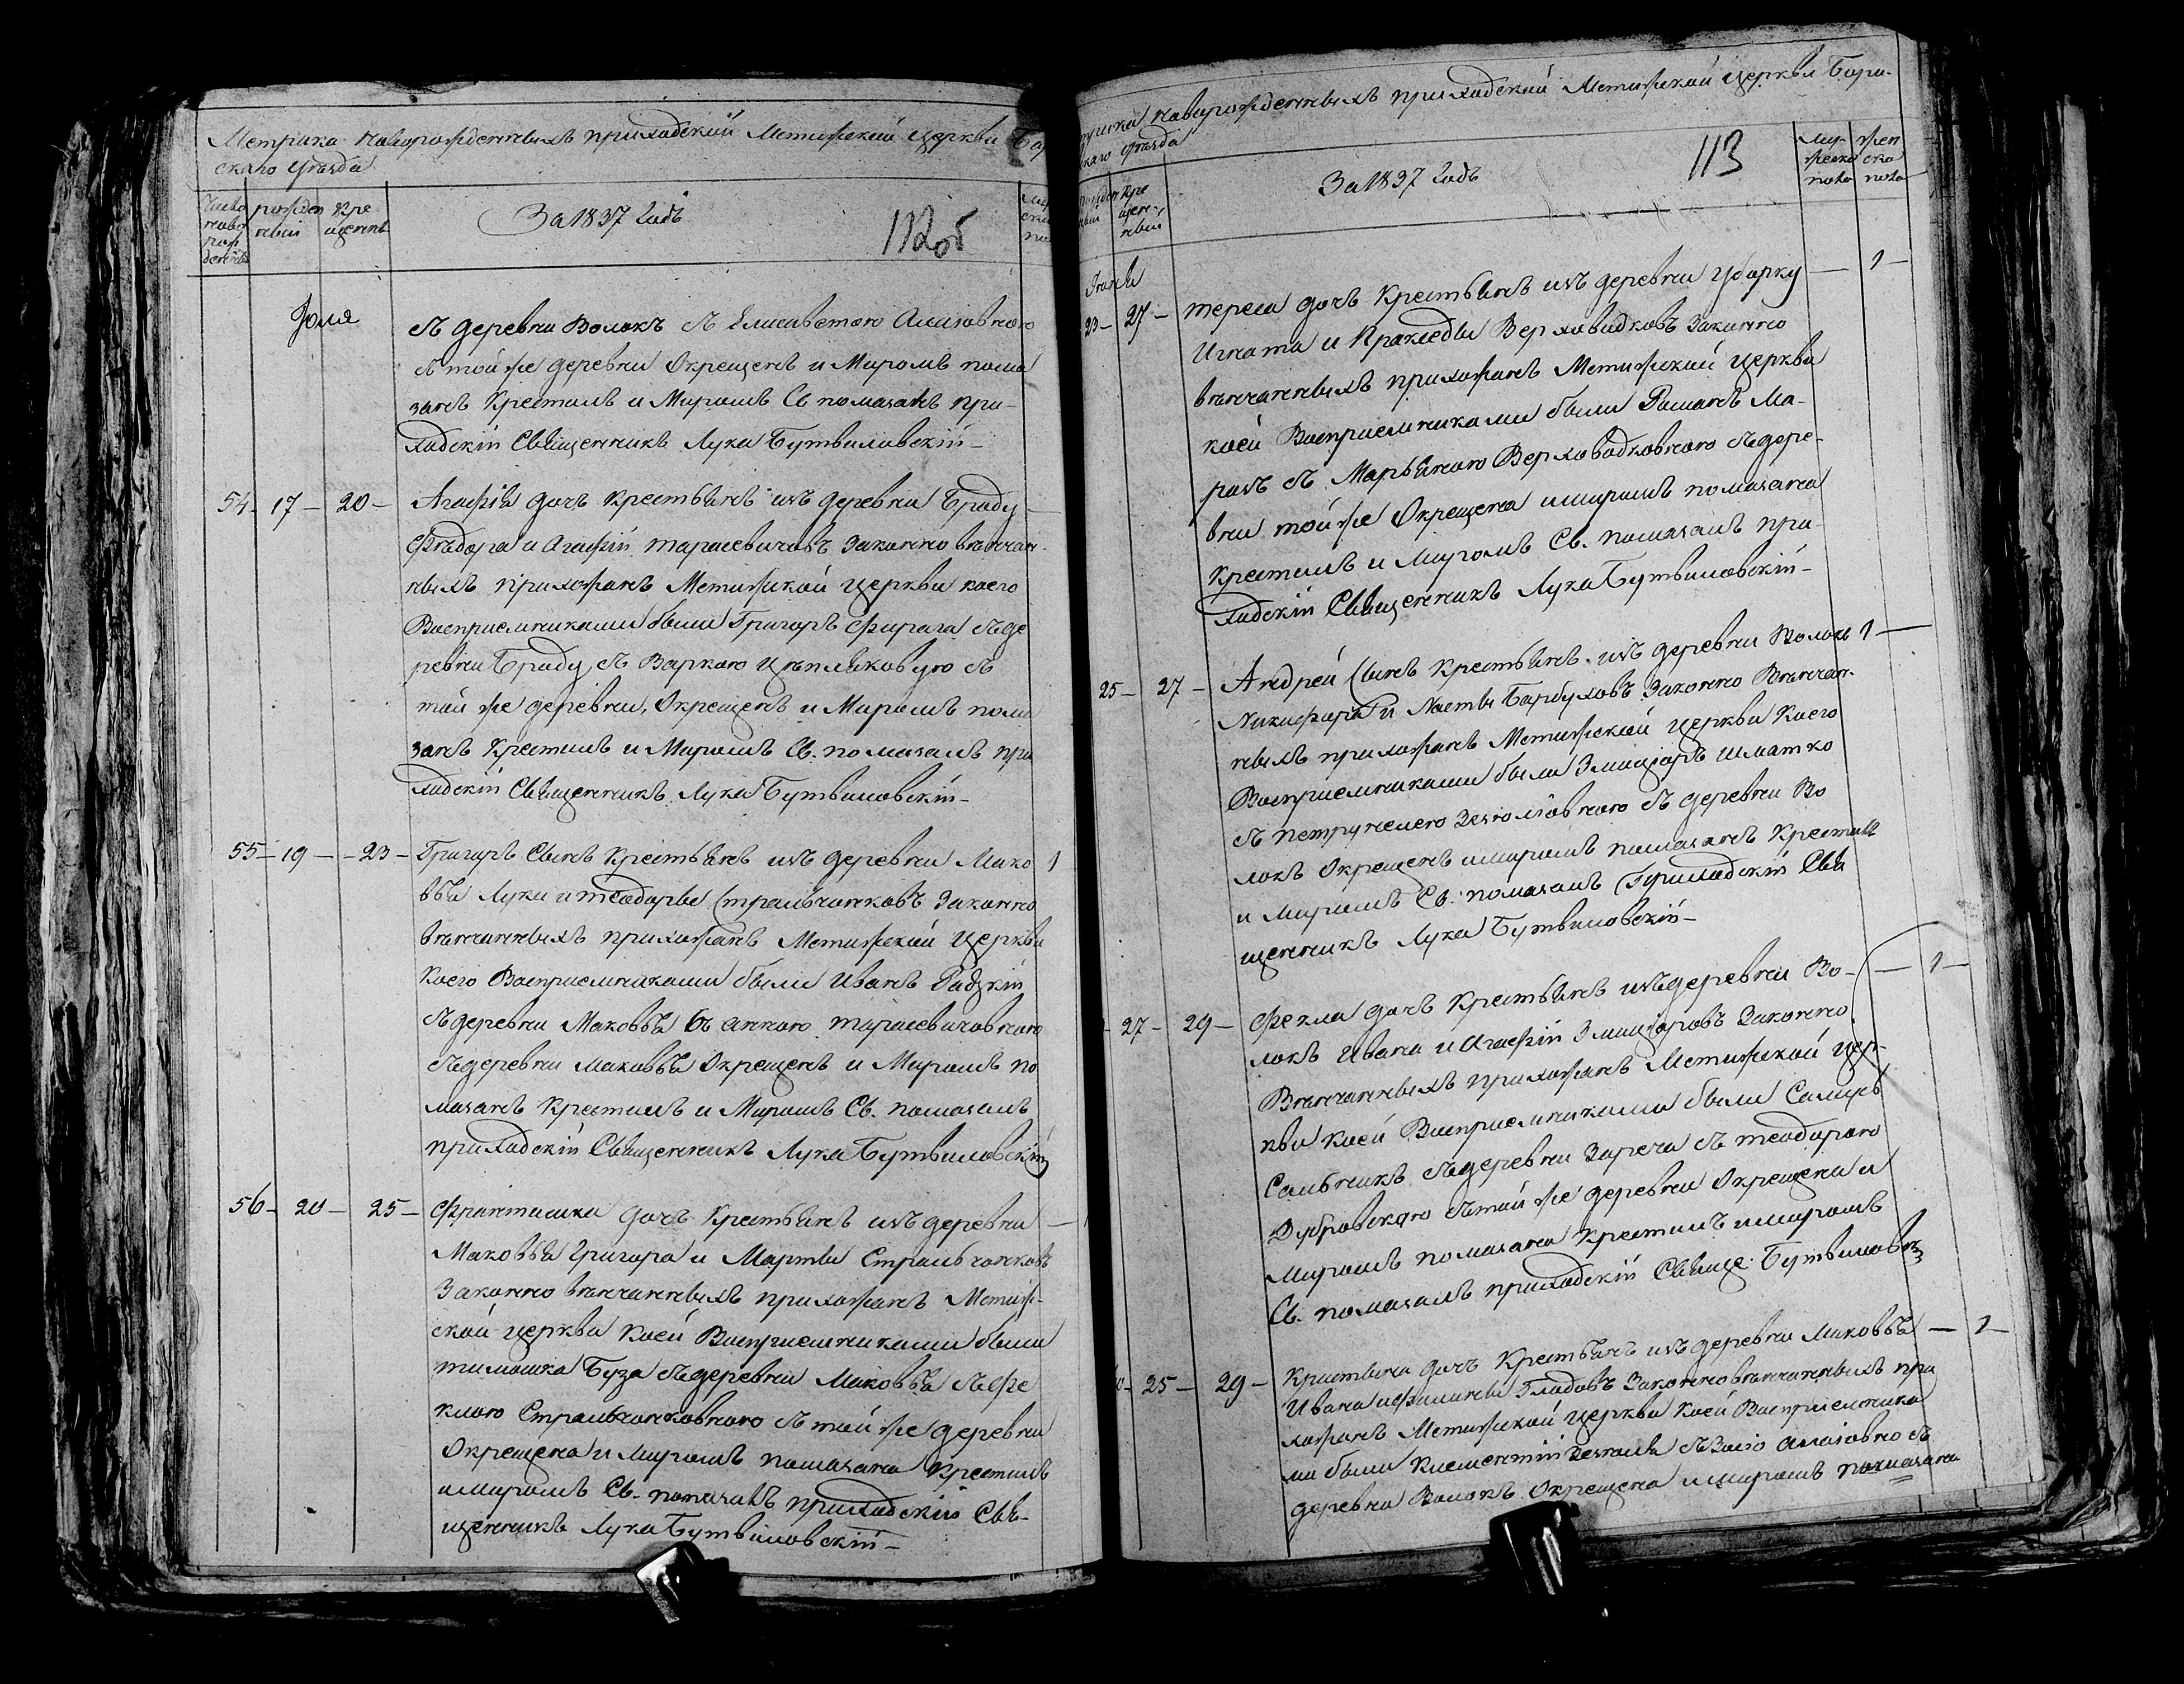 Метрика новорожденныхъ приходской Метижской церкви Бо
скаго уѣзда
Число новорожденныхъ
рожденія
крещенія
За 1837 Годъ
112об
Іюля
съ деревни Волокъ съ Елисаветою
съ той же деревни Окрещенъ и Миромъ пома
занъ Крестилъ и Миромъ Св помазалъ при-
ходскій Священникъ Лука Бутвиловскій
54 - 17 - 20 - Агафія дочь Крестьянъ изъ деревни Броду
Фѣодора и Агафіи Тарасевичовъ Законно вѣнчан-
ныхъ прихожанъ Метижской церкви коего
Воспріемниками были Григоръ Фирага съ де
ревни Броду, съ Варкою съ
той же деревни, Окрещенъ и Миромъ пома
занъ Крестилъ и Миромъ Св. помазалъ при
ходскій Священникъ Лука Бутвиловскій
55 - 19 - 23 - Григоръ Сынъ Крестьянъ изъ деревни Мако 1
вья Луки и Теодоры Стральчонковъ Законно
вѣнчанныхъ прихожанъ Метижской церкви
коего Воспріемниками были Иванъ Радзкій
съ деревни Маковья съ Анною Тарасевичовною
съ деревни Маковья Окрещенъ и Миромъ по
мазанъ Крестилъ и Миромъ Св. помазалъ
приходскій Священникъ Лука Бутвиловскій
56 - 20 - 25 - Франтишка дочь Крестьянъ изъ деревни
Маковья Григора и Марты Стральчонковъ
Законно вѣнчанныхъ прихожанъ Метиж-
ской церкви коей Воспріемниками были
Тимошка Буза съ деревни Маковья съ Фе
клою Стральчонковною съ той же деревни
Окрещена и миромъ помазана Крестилъ
и миромъ Св. помазалъ приходскій Свя-
щенникъ Лука Бутвиловскій
новорожденныхъ приходской Метижской церкви Бори-
скаго уѣзда
крещенія
За 1837 Годъ
113
мужеска пола
женска пола
Іюля
23 - 27 - Тереса дочь Крестьянъ изъ деревни Уборку - 1 -
Игната и Праксе́ды Верховодковъ Законно
вѣнчанныхъ прихожанъ Метижской церкви
коей Воспріемниками были Романъ Ма-
разъ съ Марьяною Верховодковною съ дере-
вни той же Окрещена и миромъ помазана
Крестилъ и Миромъ Св. помазалъ при-
ходскій Священникъ Лука Бутвиловскій
25 - 27 - Андрей Сынъ Крестьянъ изъ деревни Волокъ 1 -
Никифора и Насты Барбуховъ Законно Вѣнчан-
ныхъ прихожанъ Метижской церкви коего
Воспріемниками были Змицеръ Шматко
съ Петрунелею съ деревни Во
локъ Окрещенъ и миромъ помазанъ Крестилъ
и Миромъ Св. помазалъ Приходскій Свя
щенникъ Лука Бутвиловскій
27 - 29 - Фекла дочь Крестьянъ изъ деревни Во- - 1 -
локъ Ивана и Агафіи Змицеровъ Законно
Вѣнчанныхъ прихожанъ Метижской цер-
кви коей Воспріемниками были
съ деревни Заречя съ Теодорою
Дубровскою съ той же деревни Окрещена и
Миромъ помазана Крестилъ и миромъ
Св. помазалъ приходскій Свяще: Бутвиловск
25 - 29 - Крыстына дочь Крестьянъ изъ деревни Маковья - 1 -
Ивана и Гладовъ Законно вѣнчанныхъ при
хожанъ Метижской церкви коей Воспріемника
ми были Клементій съ Зосіо съ
деревни Волокъ Окрещена и миромъ помазана